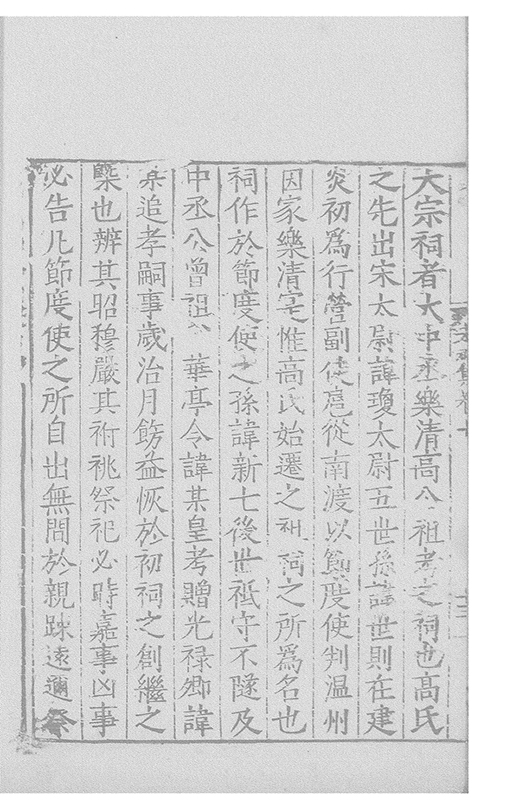 大宗祠者大中丞樂清高公祖考之祠也高氏
之先出宋太尉諱瓊太尉五世孫諱世則在建
炎初爲行營副使扈從南渡以節度使判温州
因家樂清宅惟高氏始遷之祖祠之所爲名也
祠作於節度使之孫諱新七後世祗守不隧及
中丞公曾祖公華亭令諱某皇考贈光禄卿諱
某追孝嗣事歲治月飭益恢於初祠之創繼之
槩也辨其昭穆嚴其祔祧祭祀必時嘉事凶事
必告凡節度使之所自出無間於親踈遠邇祭